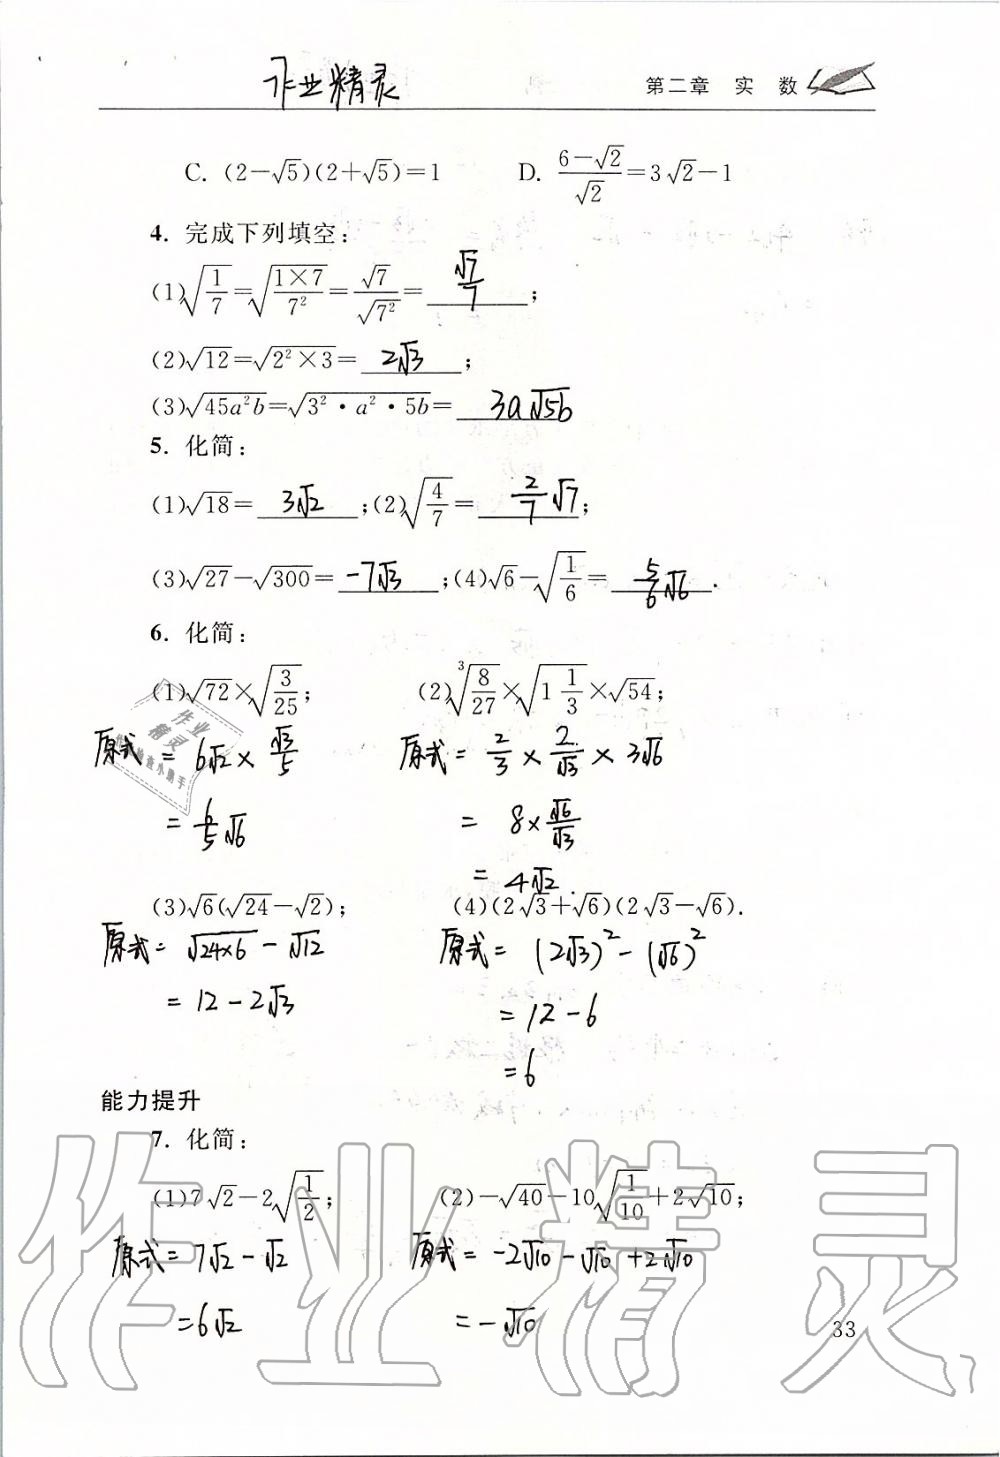 作业精灵
第二章 实 数
C. (2-√5)(2+√5)=1 D. (6-√2)/√2=3√2-1
4. 完成下列填空:
(1)√(1/7)=√((1×7)/7²)=√7/√(7²)= √7/7 ;
(2)√12=√(2²×3)= 2√3 ;
(3)√(45a²b)=√(3²·a²·5b)= 3a√(5b)
5. 化简:
(1)√18= 3√2 ;(2)√(4/7)= 2/7 √7 ;
(3)√27-√300= -7√3 ;(4)√6-√(1/6)= 5/6 √6 .
6. 化简:
(1)√72×√(3/25); (2)∛(8/27)×√(1 1/3)×√54;
原式 = 6√2 × √3/5 原式 = 2/3 × 2/√3 × 3√6
= 6/5 √6 = 8×√6/√3
= 4√2.
(3)√6(√24-√2); (4)(2√3+√6)(2√3-√6).
原式= √(24×6) - √12 原式= (2√3)² - (√6)²
= 12 - 2√3 = 12 - 6
= 6
能力提升
7. 化简:
(1)7√2-2√(1/2); (2)-√40-10√(1/10)+2√10;
原式= 7√2 - √2 原式= -2√10 - √10 + 2√10
= 6√2 = -√10
33
作业精灵